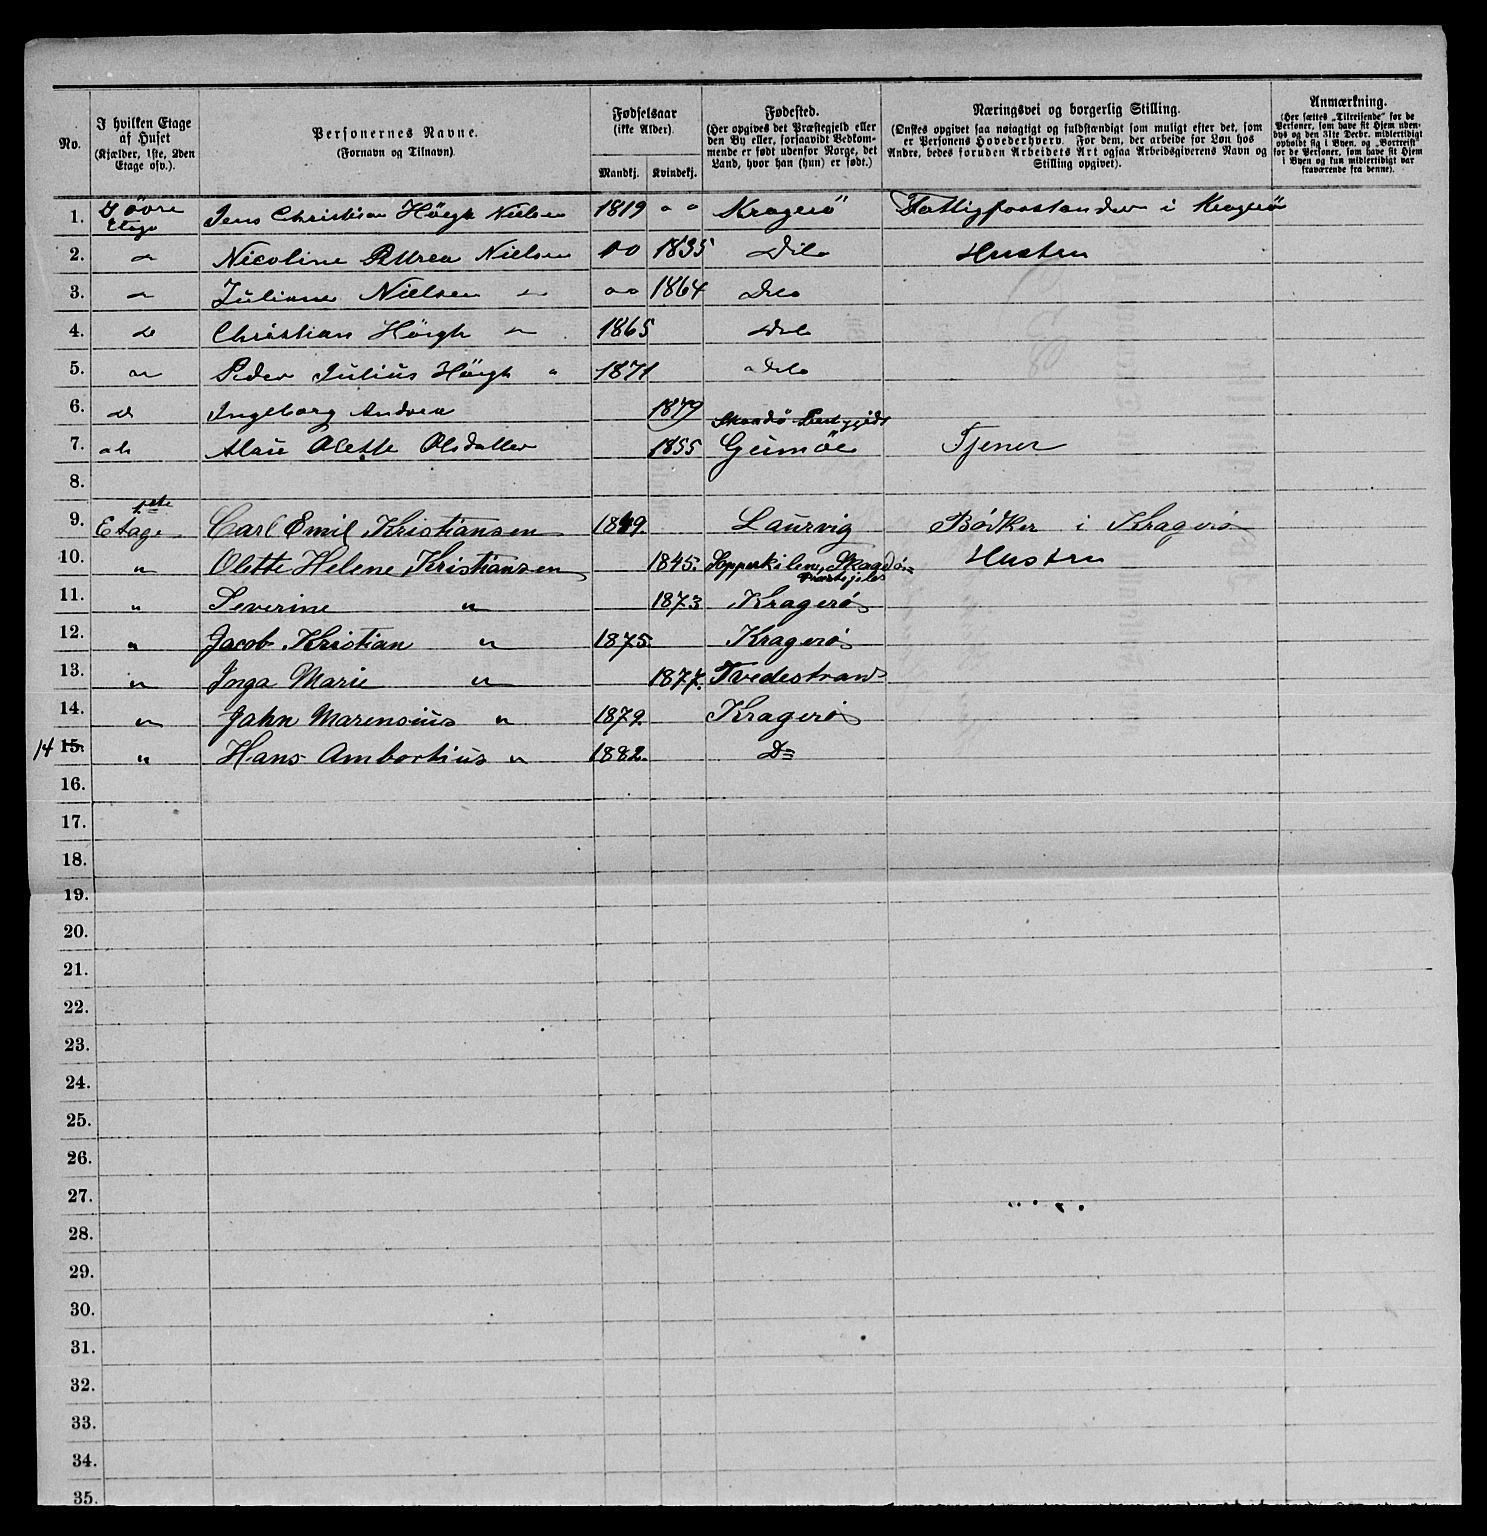 No. | I hvilken Etage af Huset (Kjælder, 1ste, 2den Etage osv.). | Personernes Navne. (Fornavn og Tilnavn). | Fødselsaar (ikke Alder). Mandkj. | Kvindekj. | Fødested. (Her opgives det Præstegjeld eller den By eller, forsaavidt Vedkommende er født udenfor Norge, det Land, hvor han (hun) er født.) | Næringsvei og borgerlig Stilling. (Ønskes opgivet saa nøiagtigt og fuldstændigt som muligt efter det, som er Personens Hovederhverv. For dem, der arbeide for Løn hos Andre, bedes foruden Arbeidets Art ogsaa Arbeidsgiverens Navn og Stilling opgivet). | Anmærkning. (Her sættes „Tilreisende" for de Personer, som have sit Hjem udenbys og den 31te Decbr. midlertidigt opholdt sig i Byen, og „Bortreist" for de Personer, som have sit Hjem i Byen og kun midlertidigt var fraværende fra denne).
1. I övre Etage Jens Christian Höegh Nielsen 1819 " " Kragerö Fattigforstander i Kragerö
2. " Nicoline Nielsen " " 1835 Dito Hustru
3. " Juliane Nielsen " " " 1864 Dito
4. " Christian Höegh " 1865 Dito
5. " Peder Julius Höegh " 1871 Dito
6. " Ingeborg Andrea 1879
7. " Olette Olsdatter 1855 Tjener
8.
9. 1ste Etage Carl Emil Kristiansen 1849. Laurvig Bödker i Kragerø
10. " Olette Helene Kristiansen 1845. Hustru
11. " Severine " 1873 Kragerø
12. " Jacob Kristian " 1875. Kragerø
13. " Inga Marie " 1877. Tvedestrand
14. " Jahn Marensius " 1879. Kragerø
14 15. " Hans Ambortius " 1882. D=
16.
17.
18.
19.
20.
21.
22.
23.
24.
25.
26.
27.
28.
29.
30.
31.
32.
33.
34.
35.